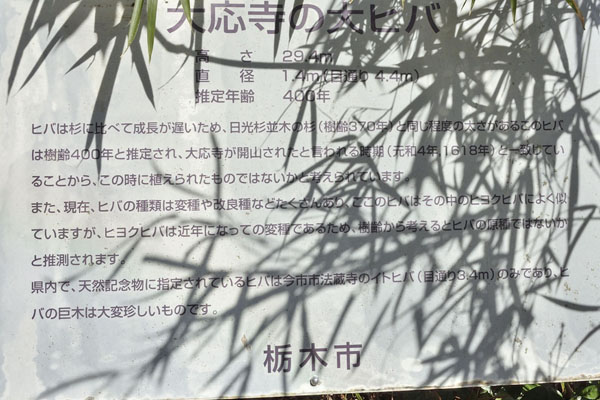 大応寺の大ヒバ
高さ 29.4m
直径 1.4m(目通り 4.4m)
推定年齢 400年
ヒバは杉に比べて成長が遅いため、日光杉並木の杉(樹齢370年)と同じ程度の太さがあるこのヒバ
は樹齢400年と推定され、大応寺が開山されたと言われる時期(元和4年,1618年)と一致してい
ることから、この時に植えられたものではないかと考えられています。
また、現在、ヒバの種類は変種や改良種などたくさんあり、ここのヒバはその中のヒヨクヒバによく似
ていますが、ヒヨクヒバは近年になっての変種であるため、樹齢から考えるとヒバの原種ではないか
と推測されます。
県内で、天然記念物に指定されているヒバは今市市法蔵寺のイトヒバ(目通り3.4m)のみであり、ヒ
バの巨木は大変珍しいものです。
栃木市